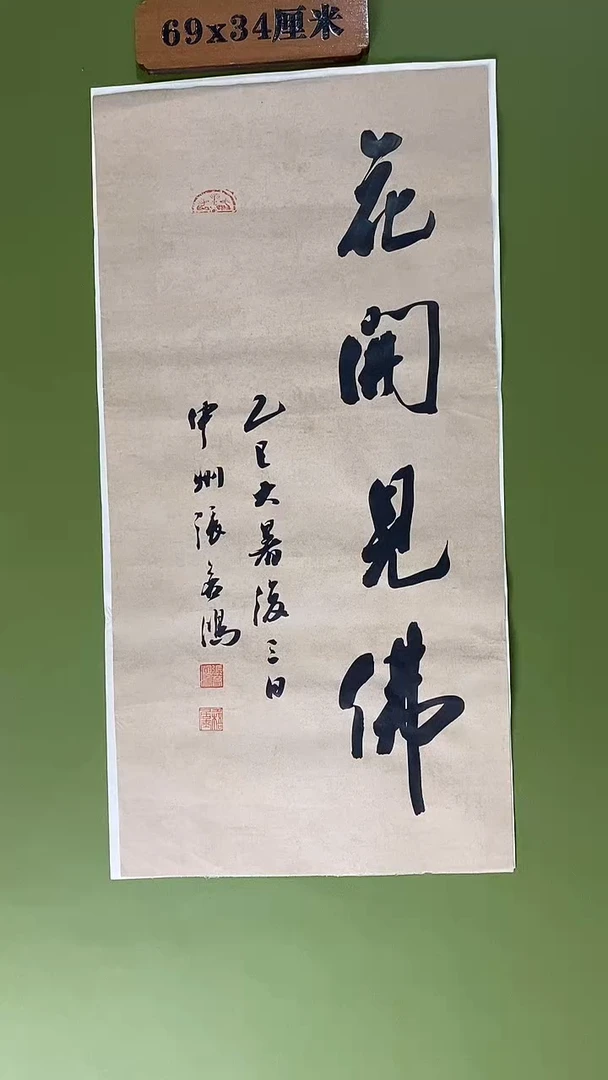 69x34厘米
花開見佛
乙巳大暑後三日
中州張
鴻